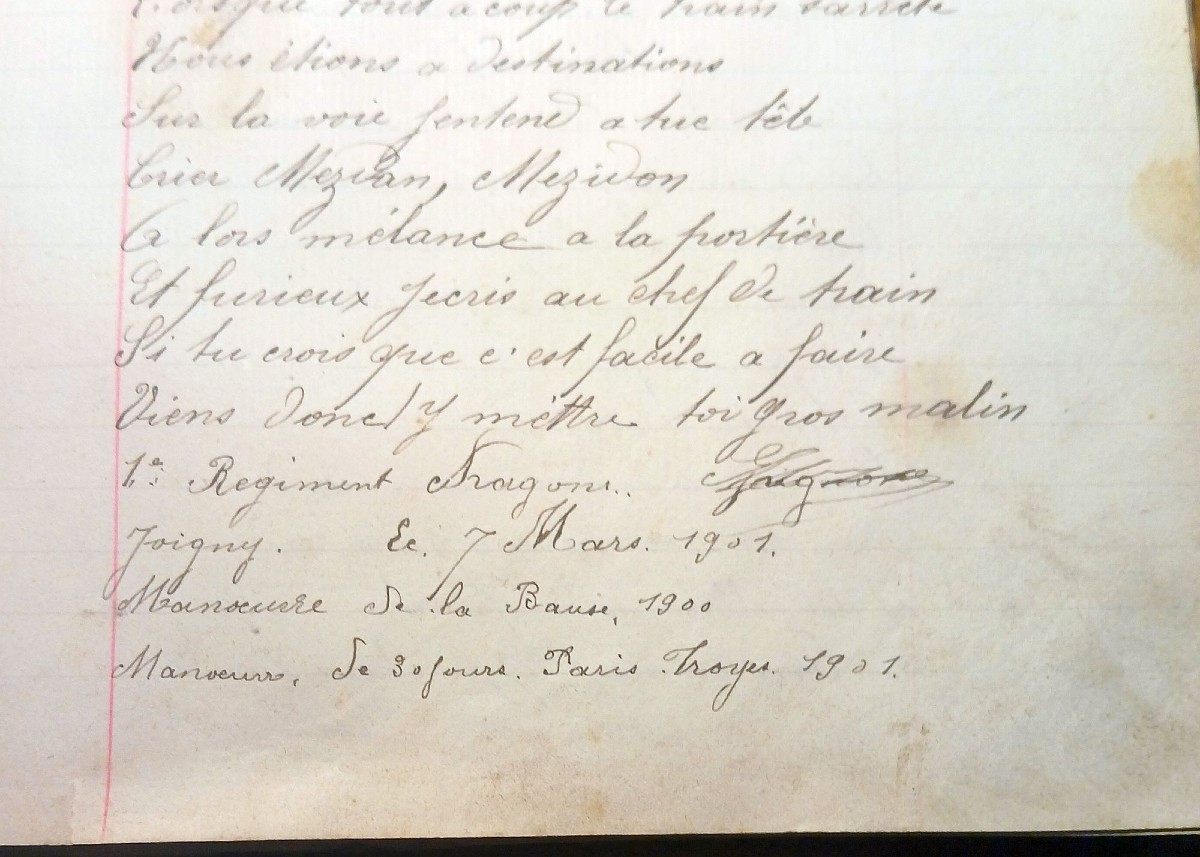 Lorsque tout a coup le train sarrete
Nous étions a destinations
Sur la voie jentend a tue tête
Crier Mezidan, Mezidon
A lors mélance a la portière
Et furieux jecris au chef de train
Si tu crois que c'est facile a faire
Viens donc t'y mettre toi gros malin
1er Regiment Dragons.
Joigny. Le. 7 Mars. 1901.
Manoeuvre de la Bause, 1900
Manoeuvre, de 30 jours. Paris Troyes. 1901.